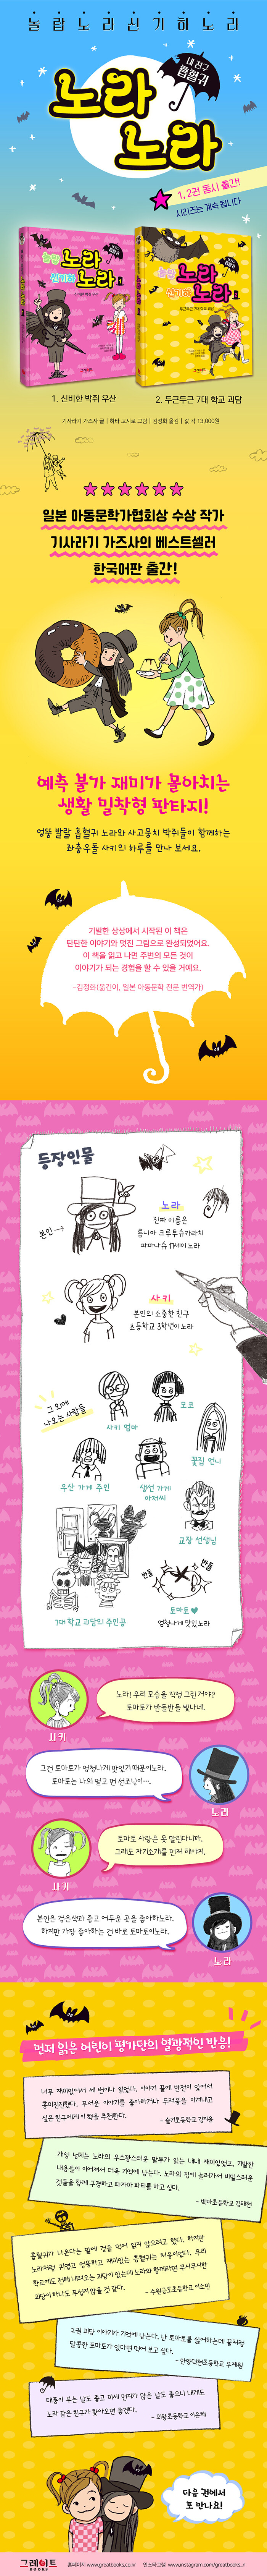 놀랍노라신기하노라
내 친구
흡혈귀
노라
노라
1, 2권 동시 출간!
시리즈는 계속 됩니다
놀랍노라
신기하노라
1
놀랍노라
신기하노라
2
1. 신비한 박쥐 우산
2. 두근두근 7대 학교 괴담
기사라기 가즈사 글 | 하타 고시로 그림 | 김정화 옮김 | 값 각 13,000원
일본 아동문학가협회상 수상 작가
기사라기 가즈사의 베스트셀러
한국어판 출간!
예측 불가 재미가 몰아치는
생활 밀착형 판타지!
엉뚱 발랄 흡혈귀 노라와 사고뭉치 박쥐들이 함께하는
좌충우돌 사키의 하루를 만나 보세요.
기발한 상상에서 시작된 이 책은
탄탄한 이야기와 멋진 그림으로 완성되었어요.
이 책을 읽고 나면 주변의 모든 것이
이야기가 되는 경험을 할 수 있을 거예요.
-김정화(옮긴이, 일본 아동문학 전문 번역가)
등장인물
본인→
노라
진짜 이름은
사키
본인의 소중한 친구
초등학교 3학년이노라
그 외에
나오는 사람들
사키 엄마
모코
꽃집 언니
우산 가게 주인
생선 가게
아저씨
교장 선생님
7대 학교 괴담의 주인공
반들
반들
토마토♥
엄청나게 맛있노라
노라! 우리 모습을 직접 그린 거야?
토마토가 반들반들 빛나네.
사키
그건 토마토가 엄청나게 맛있기 때문이노라.
토마토는 나의 멀고 먼 선조님이….
노라
토마토 사랑은 못 말린다니까.
그래도 자기소개를 먼저 해야지.
사키
본인은 검은색과 춥고 어두운 곳을 좋아하노라.
하지만 가장 좋아하는 건 바로 토마토이노라.
노라
먼저 읽은 어린이 평가단의 열광적인 반응!
너무 재미있어서 세 번이나 읽었다. 이야기 끝에 반전이 있어서
흥미진진했다. 무서운 이야기를 좋아하거나 두려움을 이겨내고
싶은 친구에게 이 책을 추천한다.
- 슬기초등학교 김지윤
개성 넘치는 노라의 우스꽝스러운 말투가 읽는 내내 재미있었고, 기발한
내용들이 이어져서 더욱 기억에 남는다. 노라의 집에 놀러가서 비밀스러운
것들을 함께 구경하고 파자마 파티를 하고 싶다.
흡혈귀가 나온다는 말에 겁을 먹어 읽지 않으려고 했다. 하지만
노라처럼 귀엽고 엉뚱하고 재미있는 흡혈귀는 처음이었다. 우리
학교에도 전해 내려오는 괴담이 있는데 노라와 함께라면 무시무시한
괴담이 하나도 무섭지 않을 것 같다.
2권 괴담 이야기가 기억에 남는다. 난 토마토를 싫어하는데 꿀처럼
달콤한 토마토가 있다면 먹어 보고 싶다.
태풍이 부는 날도 좋고 미세 먼지가 많은 날도 좋으니 내게도
노라 같은 친구가 찾아오면 좋겠다.
다음 권에서
또 만나요!
그레이트
BOOKS
홈페이지 www.greatbooks.co.kr 인스타그램 www.instagram.com/greatbooks_n